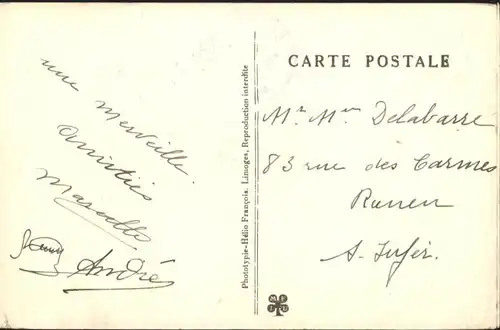 une merveille.
Amitiés
Marcelle
André
Phototypie-Hélio François, Limoges, Reproduction interdite
CARTE POSTALE
Mr Mme Delabarre
83 rue des Carmes
Rouen
S. Infér.